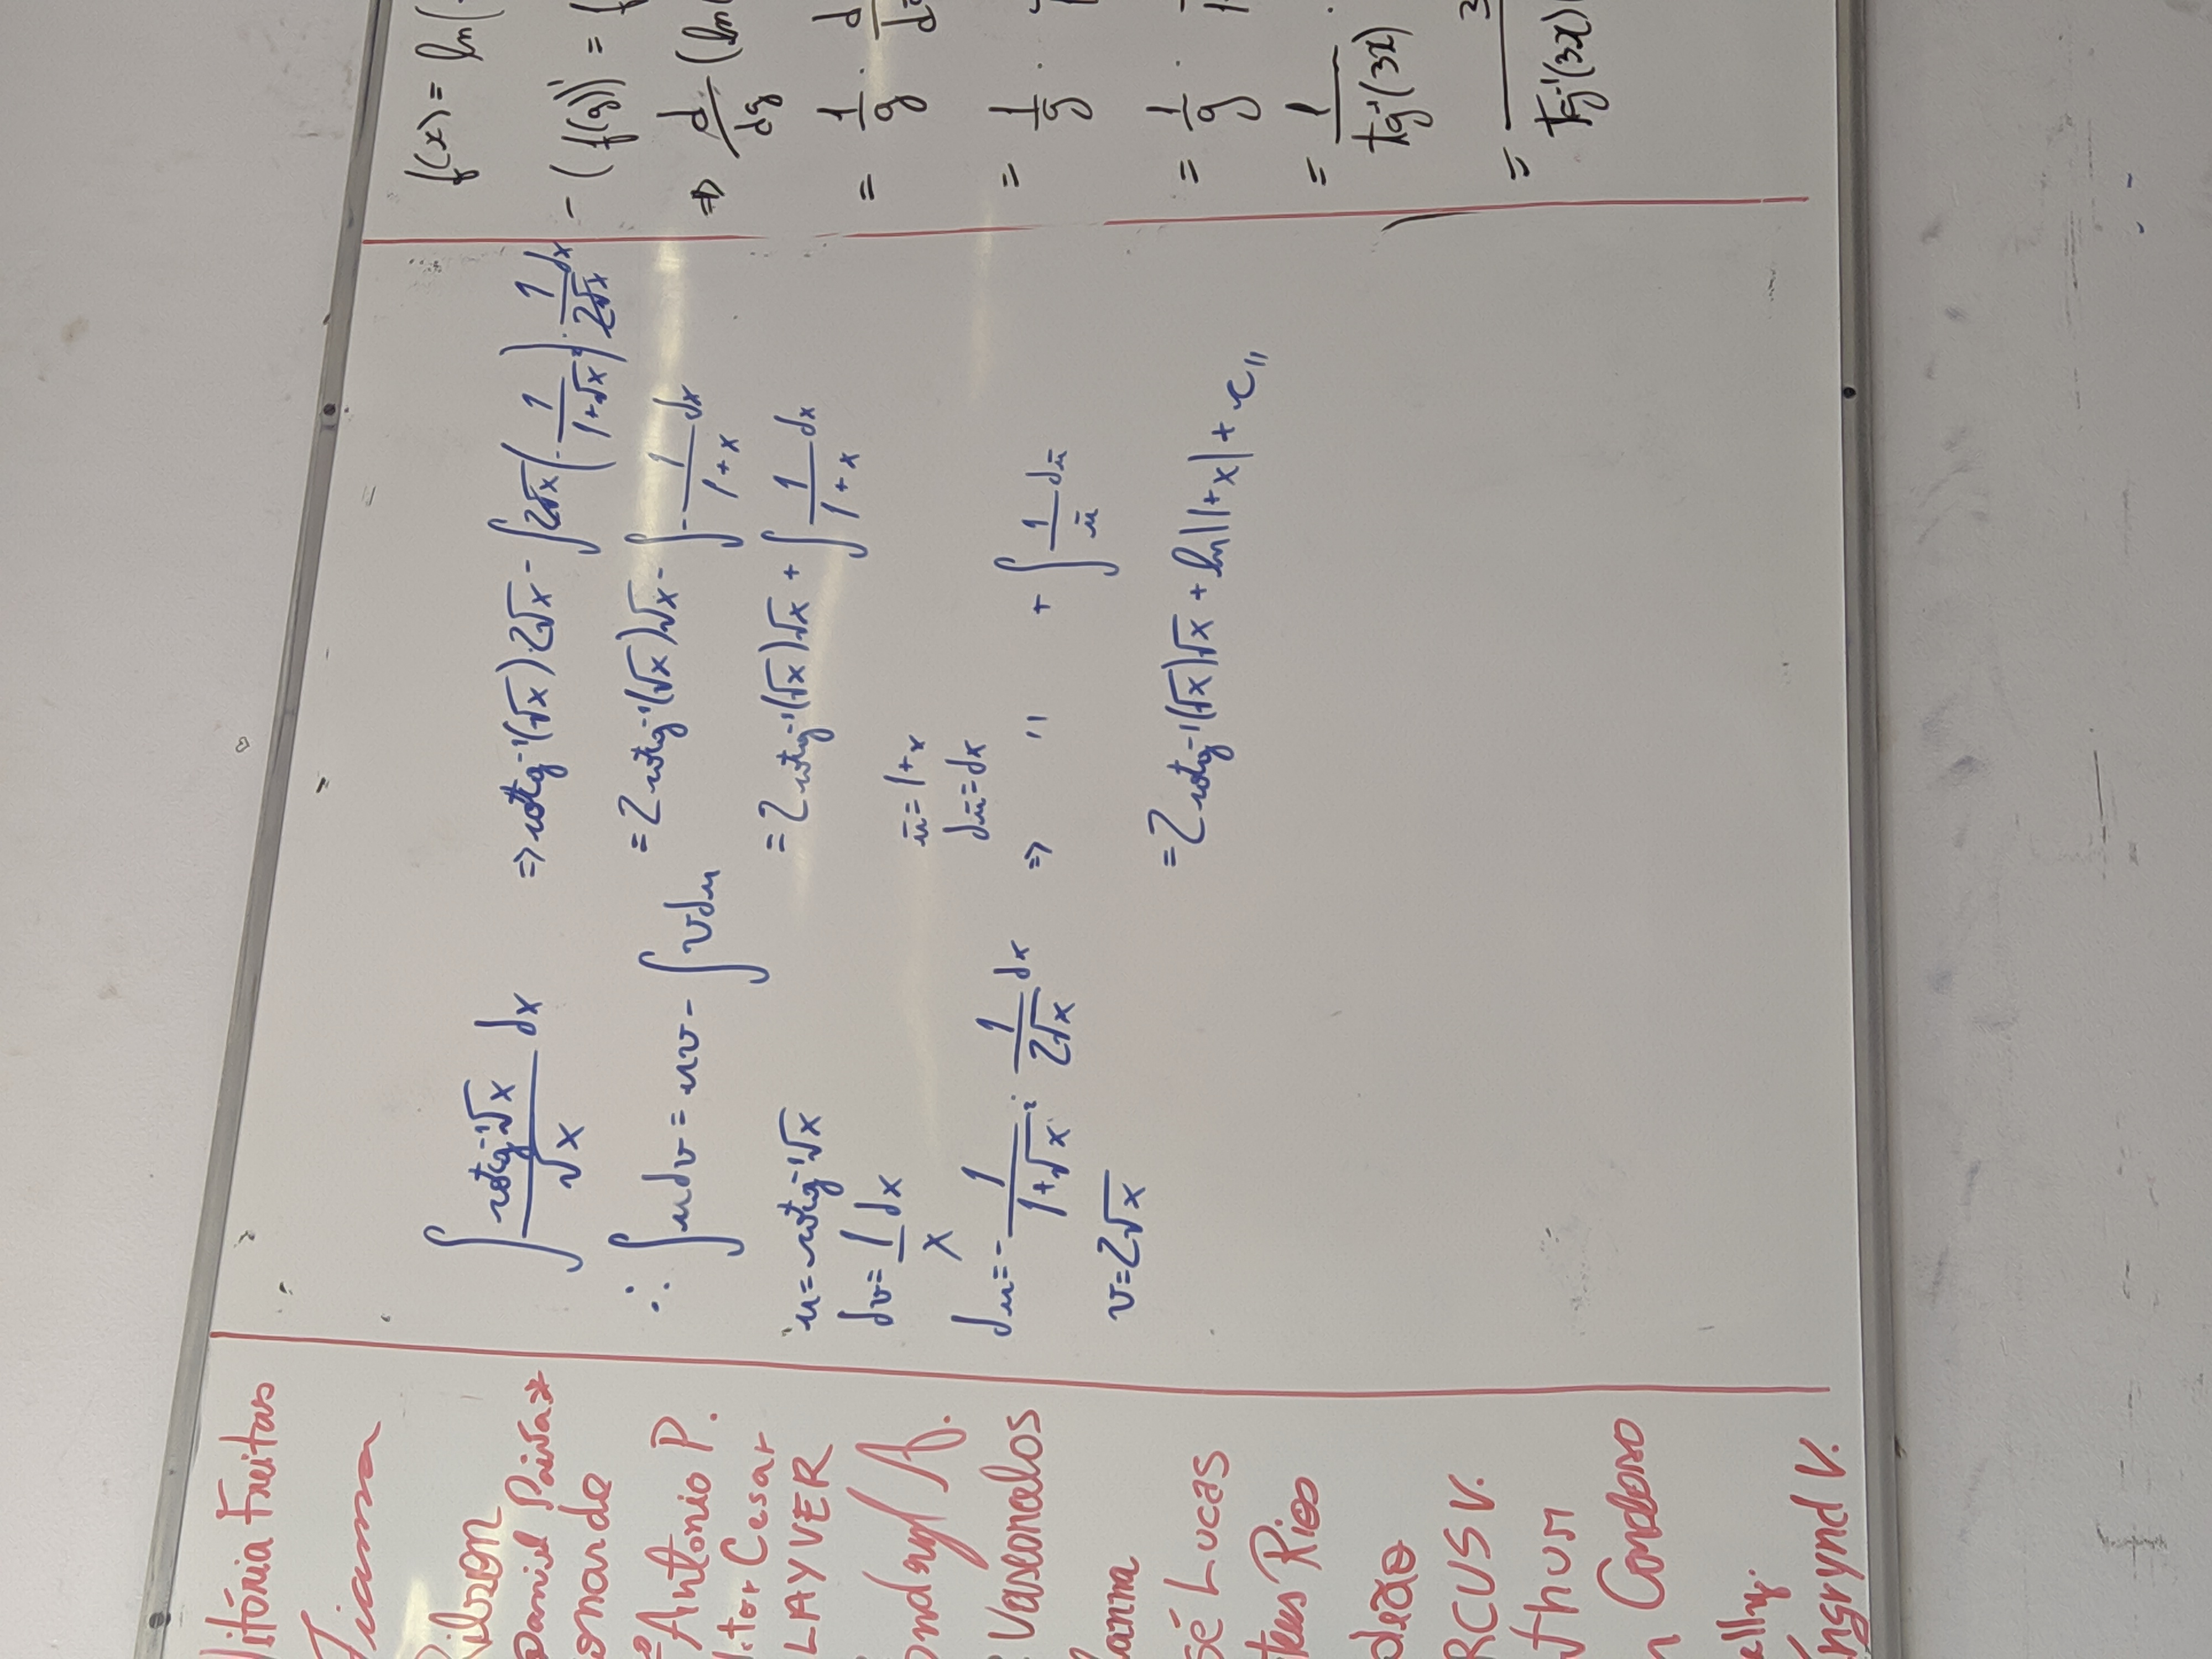 Vitória Freitas
Fianna
Rilson
Daniel Paiva*
onardo
Antonio P.
itor Cesar
LAYVER
A.
Vasconcelos
anna
sé Lucas
teus Rios
RCUS V.
thur
Cardoso
elly.
ngrynd V.
∫ cotg⁻¹√x / √x dx
∴ ∫ u dv = uv - ∫ v du
u = cotg⁻¹√x
dv = 1/x dx
du = - 1/(1+√x²) · 1/(2√x) dx
v = 2√x
⇒ cotg⁻¹(√x)·2√x - ∫ 2√x (- 1/(1+√x²)) · 1/(2√x) dx
= 2 cotg⁻¹(√x)√x - ∫ - 1/(1+x) dx
= 2 cotg⁻¹(√x)√x + ∫ 1/(1+x) dx
ū = 1+x
dū = dx
⇒ " + ∫ 1/ū dū
= 2 cotg⁻¹(√x)√x + ln|1+x| + c //
f(x) = ln(
- (f(g))' = f
⇒ d/dg (ln(
= 1/g · d/d
= 1/g ·
= 1/g ·
= 1/tg⁻¹(3x) ·
= 3/tg⁻¹(3x)(